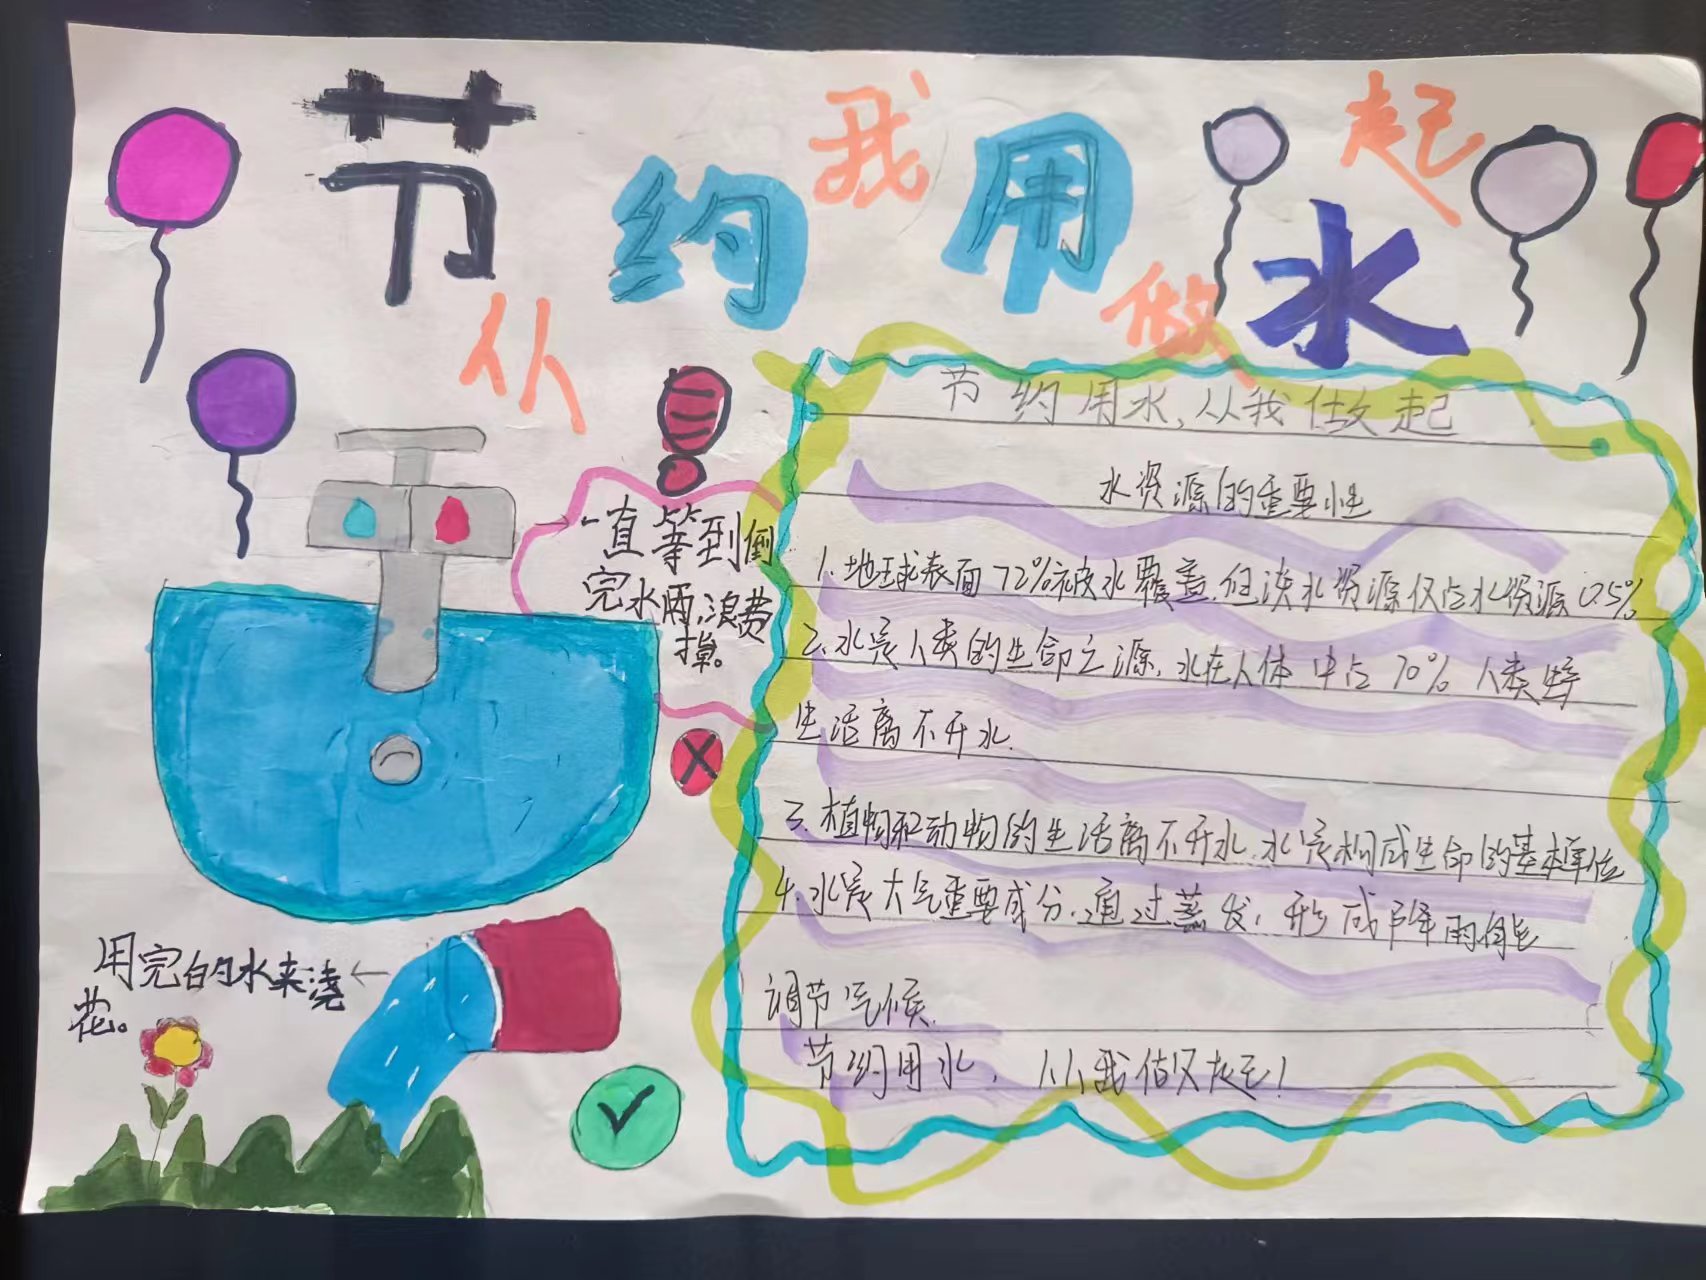 节约用水
从我做起
一直等到倒
完水两，浪费
掉。
用完的水来浇
花。
节约用水，从我做起
水资源的重要性
1.地球表面72%被水覆盖，但淡水资源仅占水资源0.5%
2.水是人类的生命之源，水在人体中占70%人类
生活离不开水.
3.植物和动物的生活离不开水，水是构成生命的基本单位
4.水是大气重要成分，通过蒸发，形成降雨能
调节气候.
节约用水，从我做起！